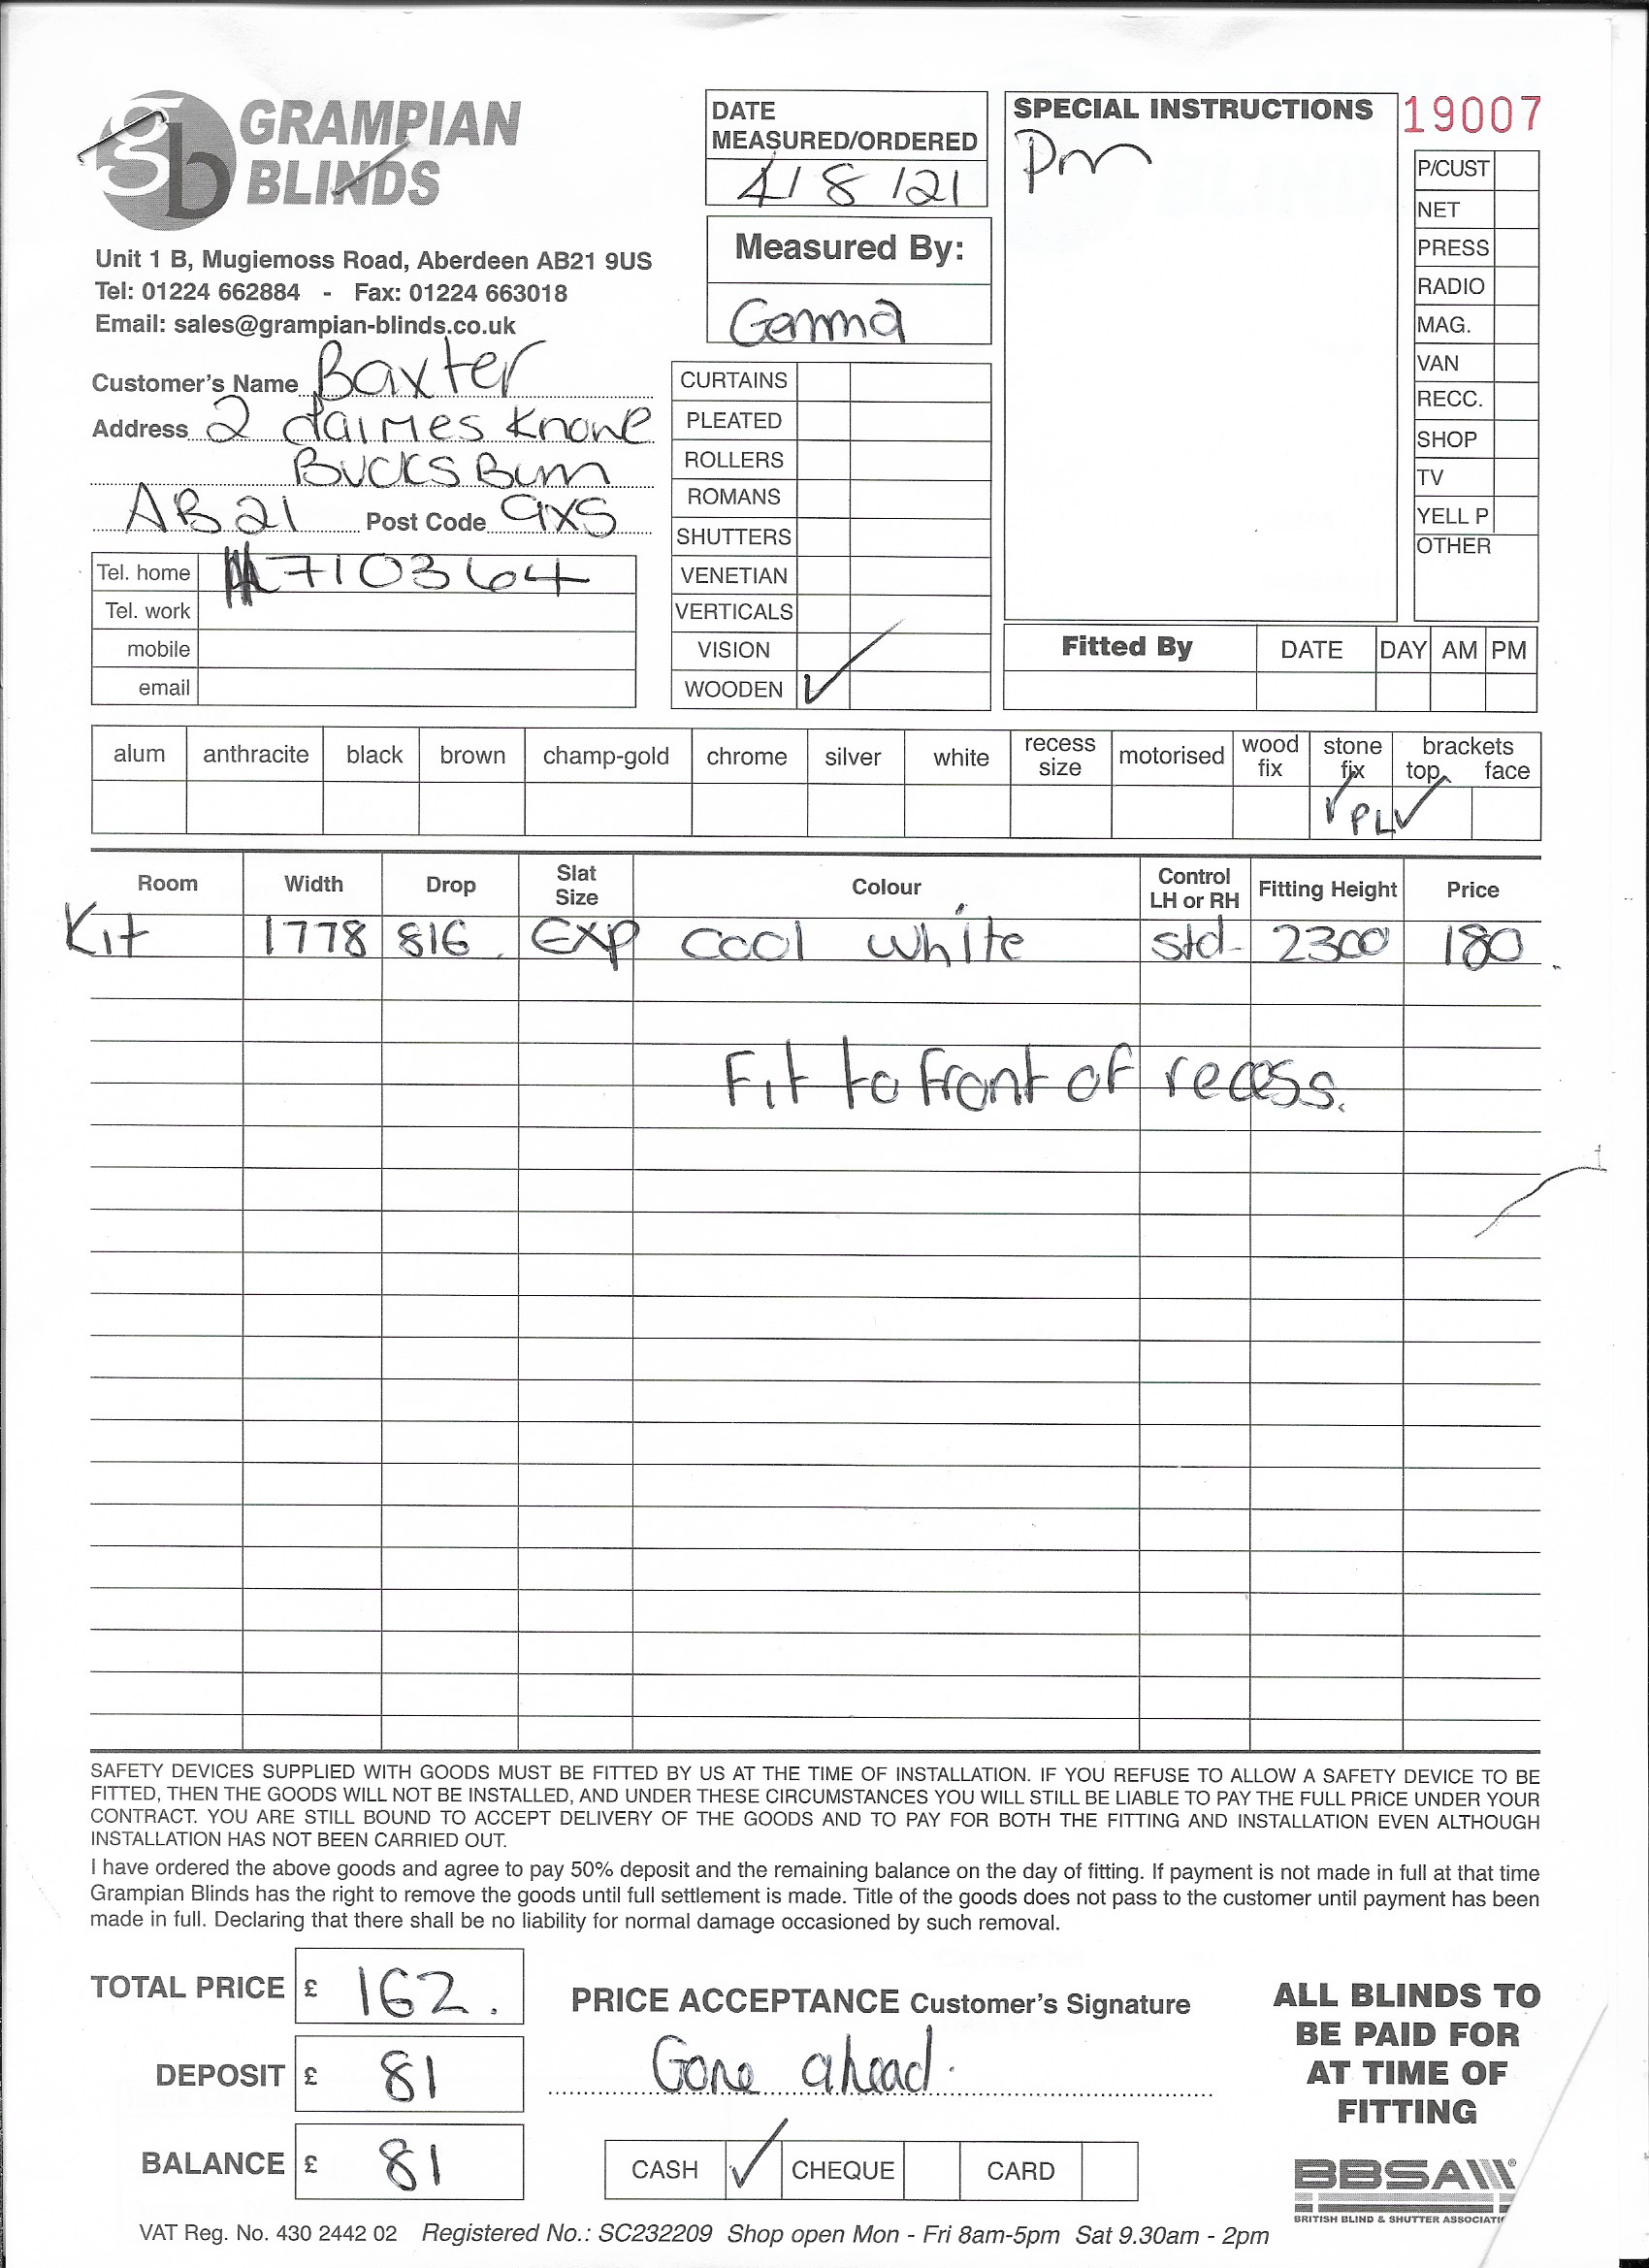 gb GRAMPIAN
BLINDS
Unit 1 B, Mugiemoss Road, Aberdeen AB21 9US
Tel: 01224 662884 - Fax: 01224 663018
Email: sales@grampian-blinds.co.uk
DATE
MEASURED/ORDERED
4/8/21
Measured By:
Gemma
SPECIAL INSTRUCTIONS
Pm
19007
P/CUST
NET
PRESS
RADIO
MAG.
VAN
RECC.
SHOP
TV
YELL P
OTHER
Customer's Name Baxter
Address 2 Knowe
BUCKSBurn
AB21 Post Code 9XS
Tel. home 710364
Tel. work
mobile
email
CURTAINS
PLEATED
ROLLERS
ROMANS
SHUTTERS
VENETIAN
VERTICALS
VISION
WOODEN ✓
Fitted By DATE DAY AM PM
alum anthracite black brown champ-gold chrome silver white recess size motorised wood fix stone fix brackets top face
✓ PL ✓
Room Width Drop Slat Size Colour Control LH or RH Fitting Height Price
Kit 1778 816 Exp cool white std- 2300 180.
Fit to front of recess.
SAFETY DEVICES SUPPLIED WITH GOODS MUST BE FITTED BY US AT THE TIME OF INSTALLATION. IF YOU REFUSE TO ALLOW A SAFETY DEVICE TO BE
FITTED, THEN THE GOODS WILL NOT BE INSTALLED, AND UNDER THESE CIRCUMSTANCES YOU WILL STILL BE LIABLE TO PAY THE FULL PRICE UNDER YOUR
CONTRACT. YOU ARE STILL BOUND TO ACCEPT DELIVERY OF THE GOODS AND TO PAY FOR BOTH THE FITTING AND INSTALLATION EVEN ALTHOUGH
INSTALLATION HAS NOT BEEN CARRIED OUT.
I have ordered the above goods and agree to pay 50% deposit and the remaining balance on the day of fitting. If payment is not made in full at that time
Grampian Blinds has the right to remove the goods until full settlement is made. Title of the goods does not pass to the customer until payment has been
made in full. Declaring that there shall be no liability for normal damage occasioned by such removal.
TOTAL PRICE £ 162.
DEPOSIT £ 81
BALANCE £ 81
PRICE ACCEPTANCE Customer's Signature
Gone ahead.
CASH ✓ CHEQUE CARD
ALL BLINDS TO
BE PAID FOR
AT TIME OF
FITTING
BBSA
BRITISH BLIND & SHUTTER
VAT Reg. No. 430 2442 02 Registered No.: SC232209 Shop open Mon - Fri 8am-5pm Sat 9.30am - 2pm